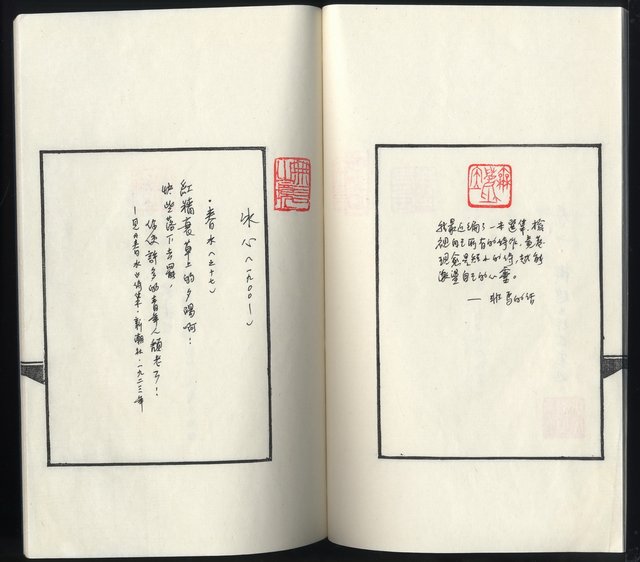 我最近編了一本選集，檢
視自己所有的詩作，竟發
現愈是短小的詩，越能
滿足自己的心靈。
— 非馬的話
冰心（一九〇〇—）
·春水（五十七）
紅牆衰草上的夕陽啊！
快些落下去罷，
你使許多的青年人頹老了！
—見《春水》詩集，新潮社，一九二三年